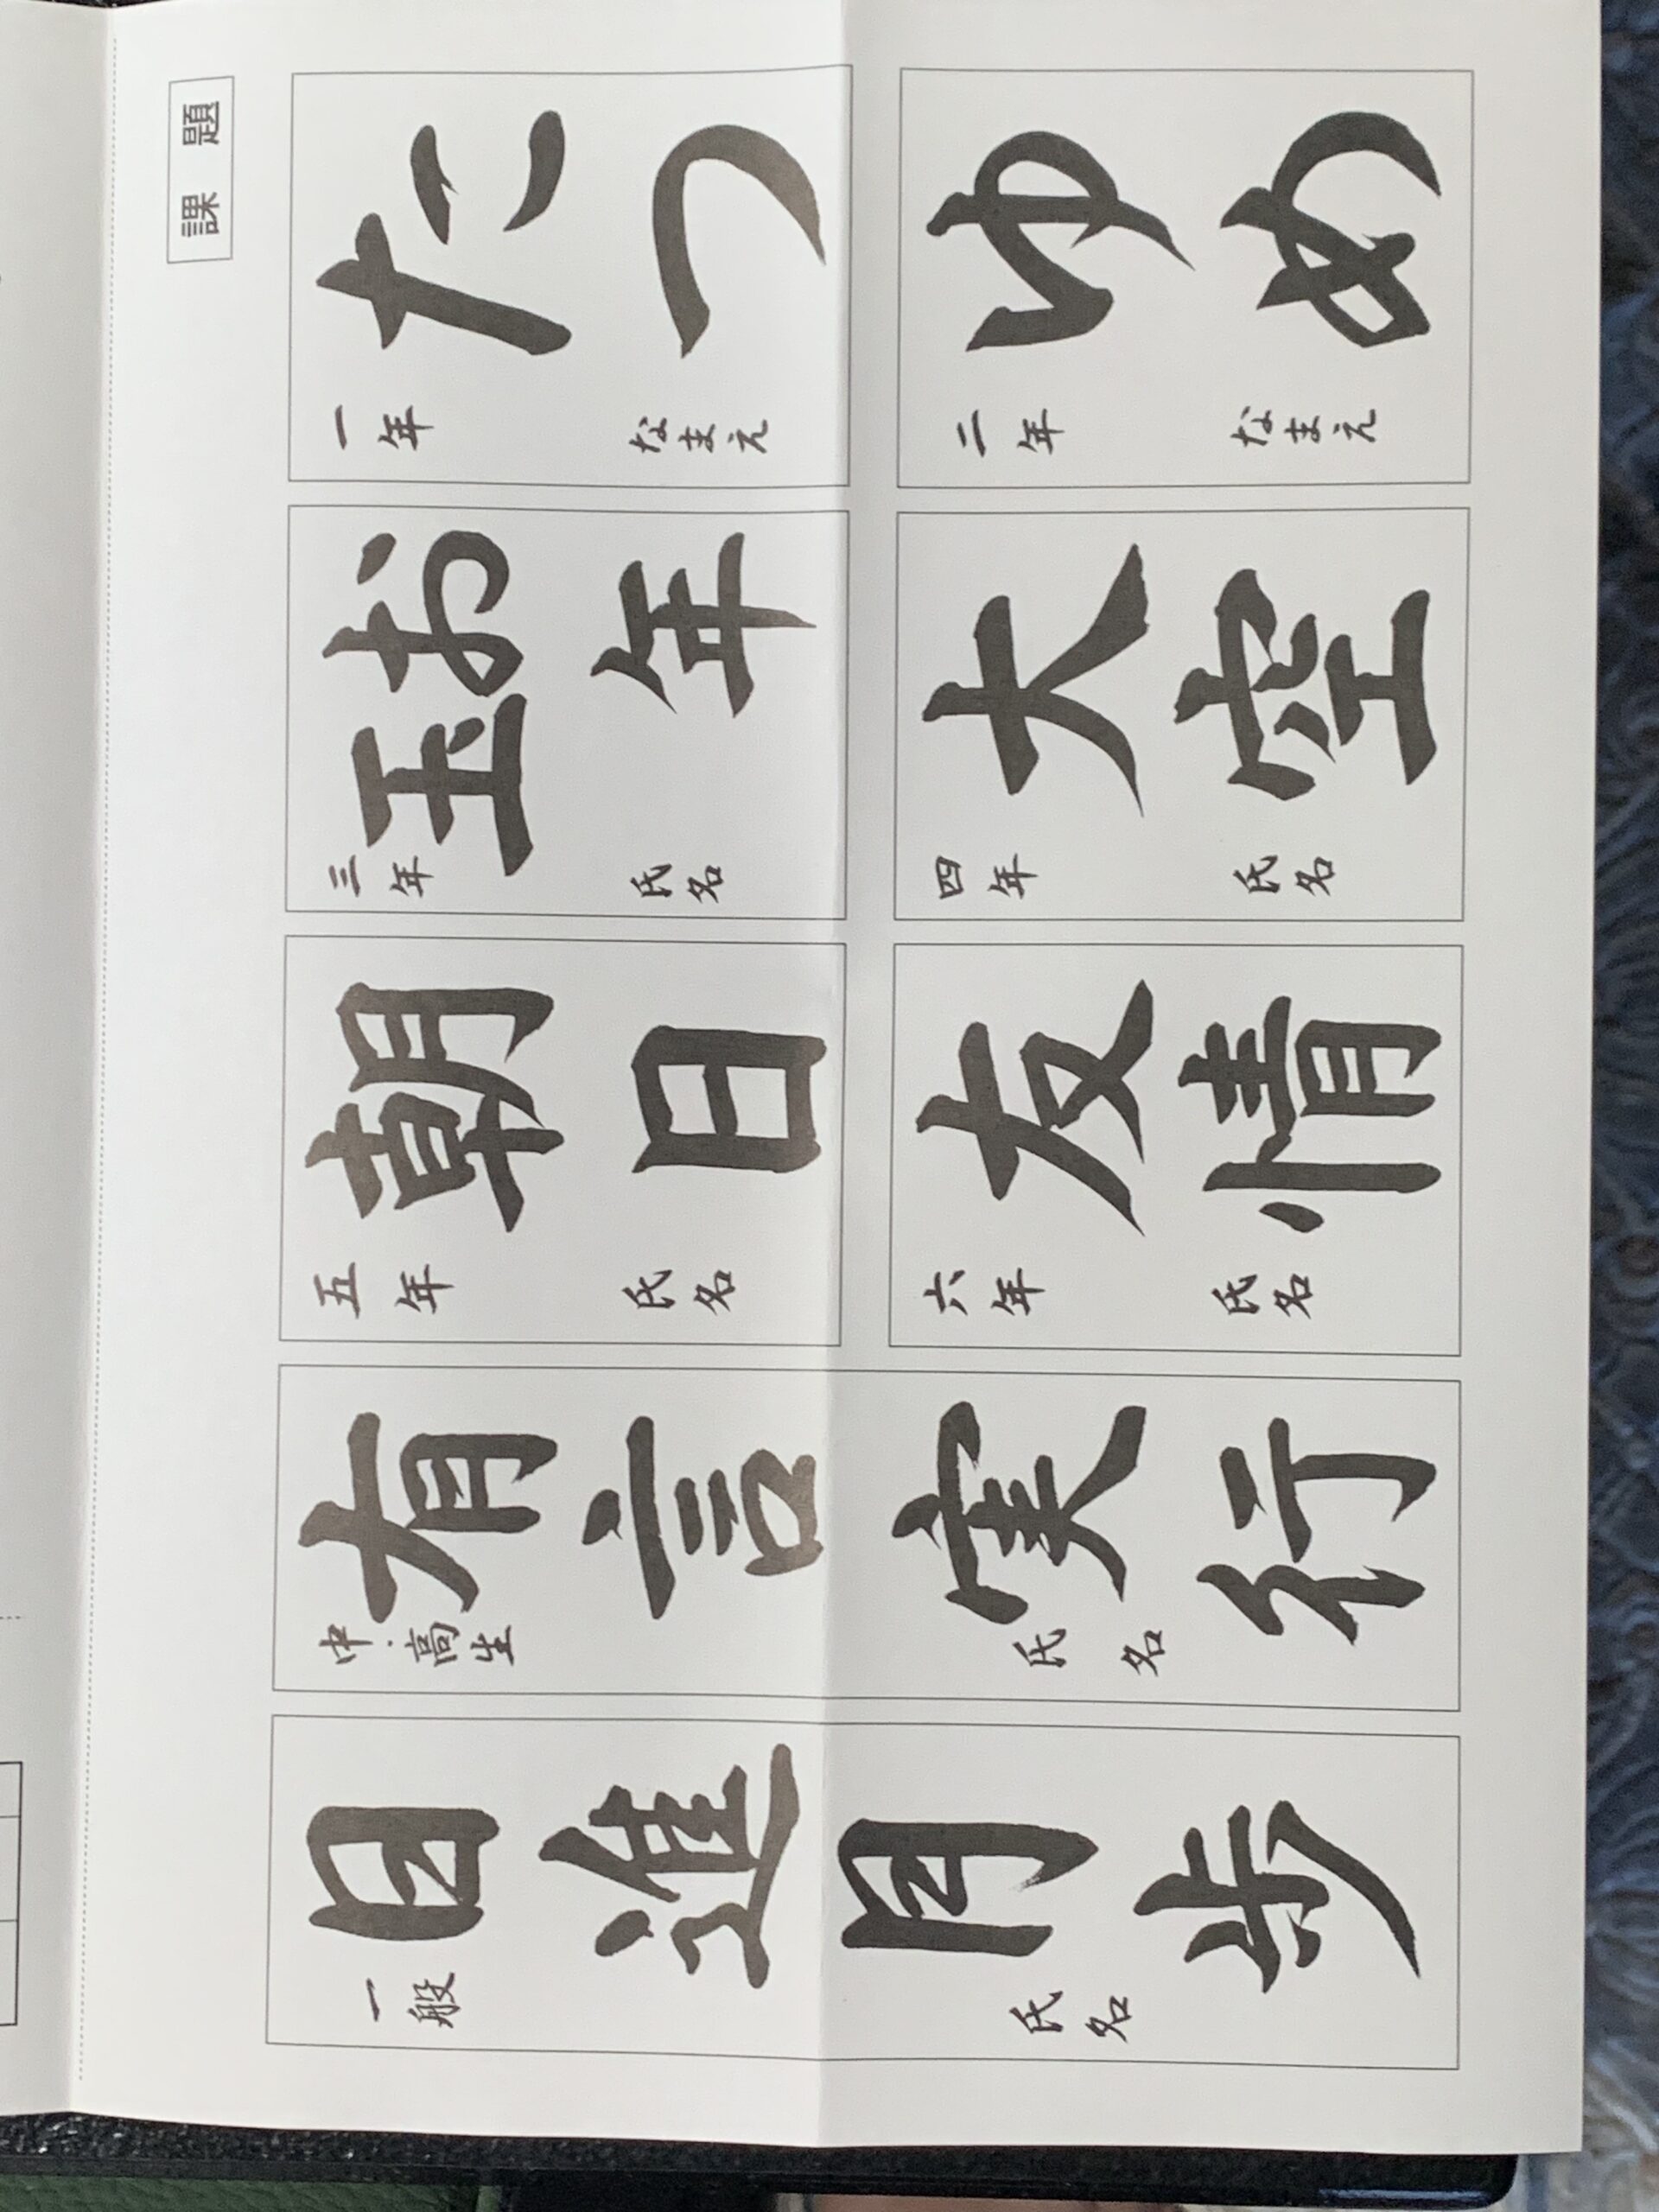 課題
たつ
一年 なまえ
ゆめ
二年 なまえ
お年
玉
三年 氏名
大空
四年 氏名
朝日
五年 氏名
友情
六年 氏名
有言実行
中・高生 氏名
日進月歩
一般 氏名